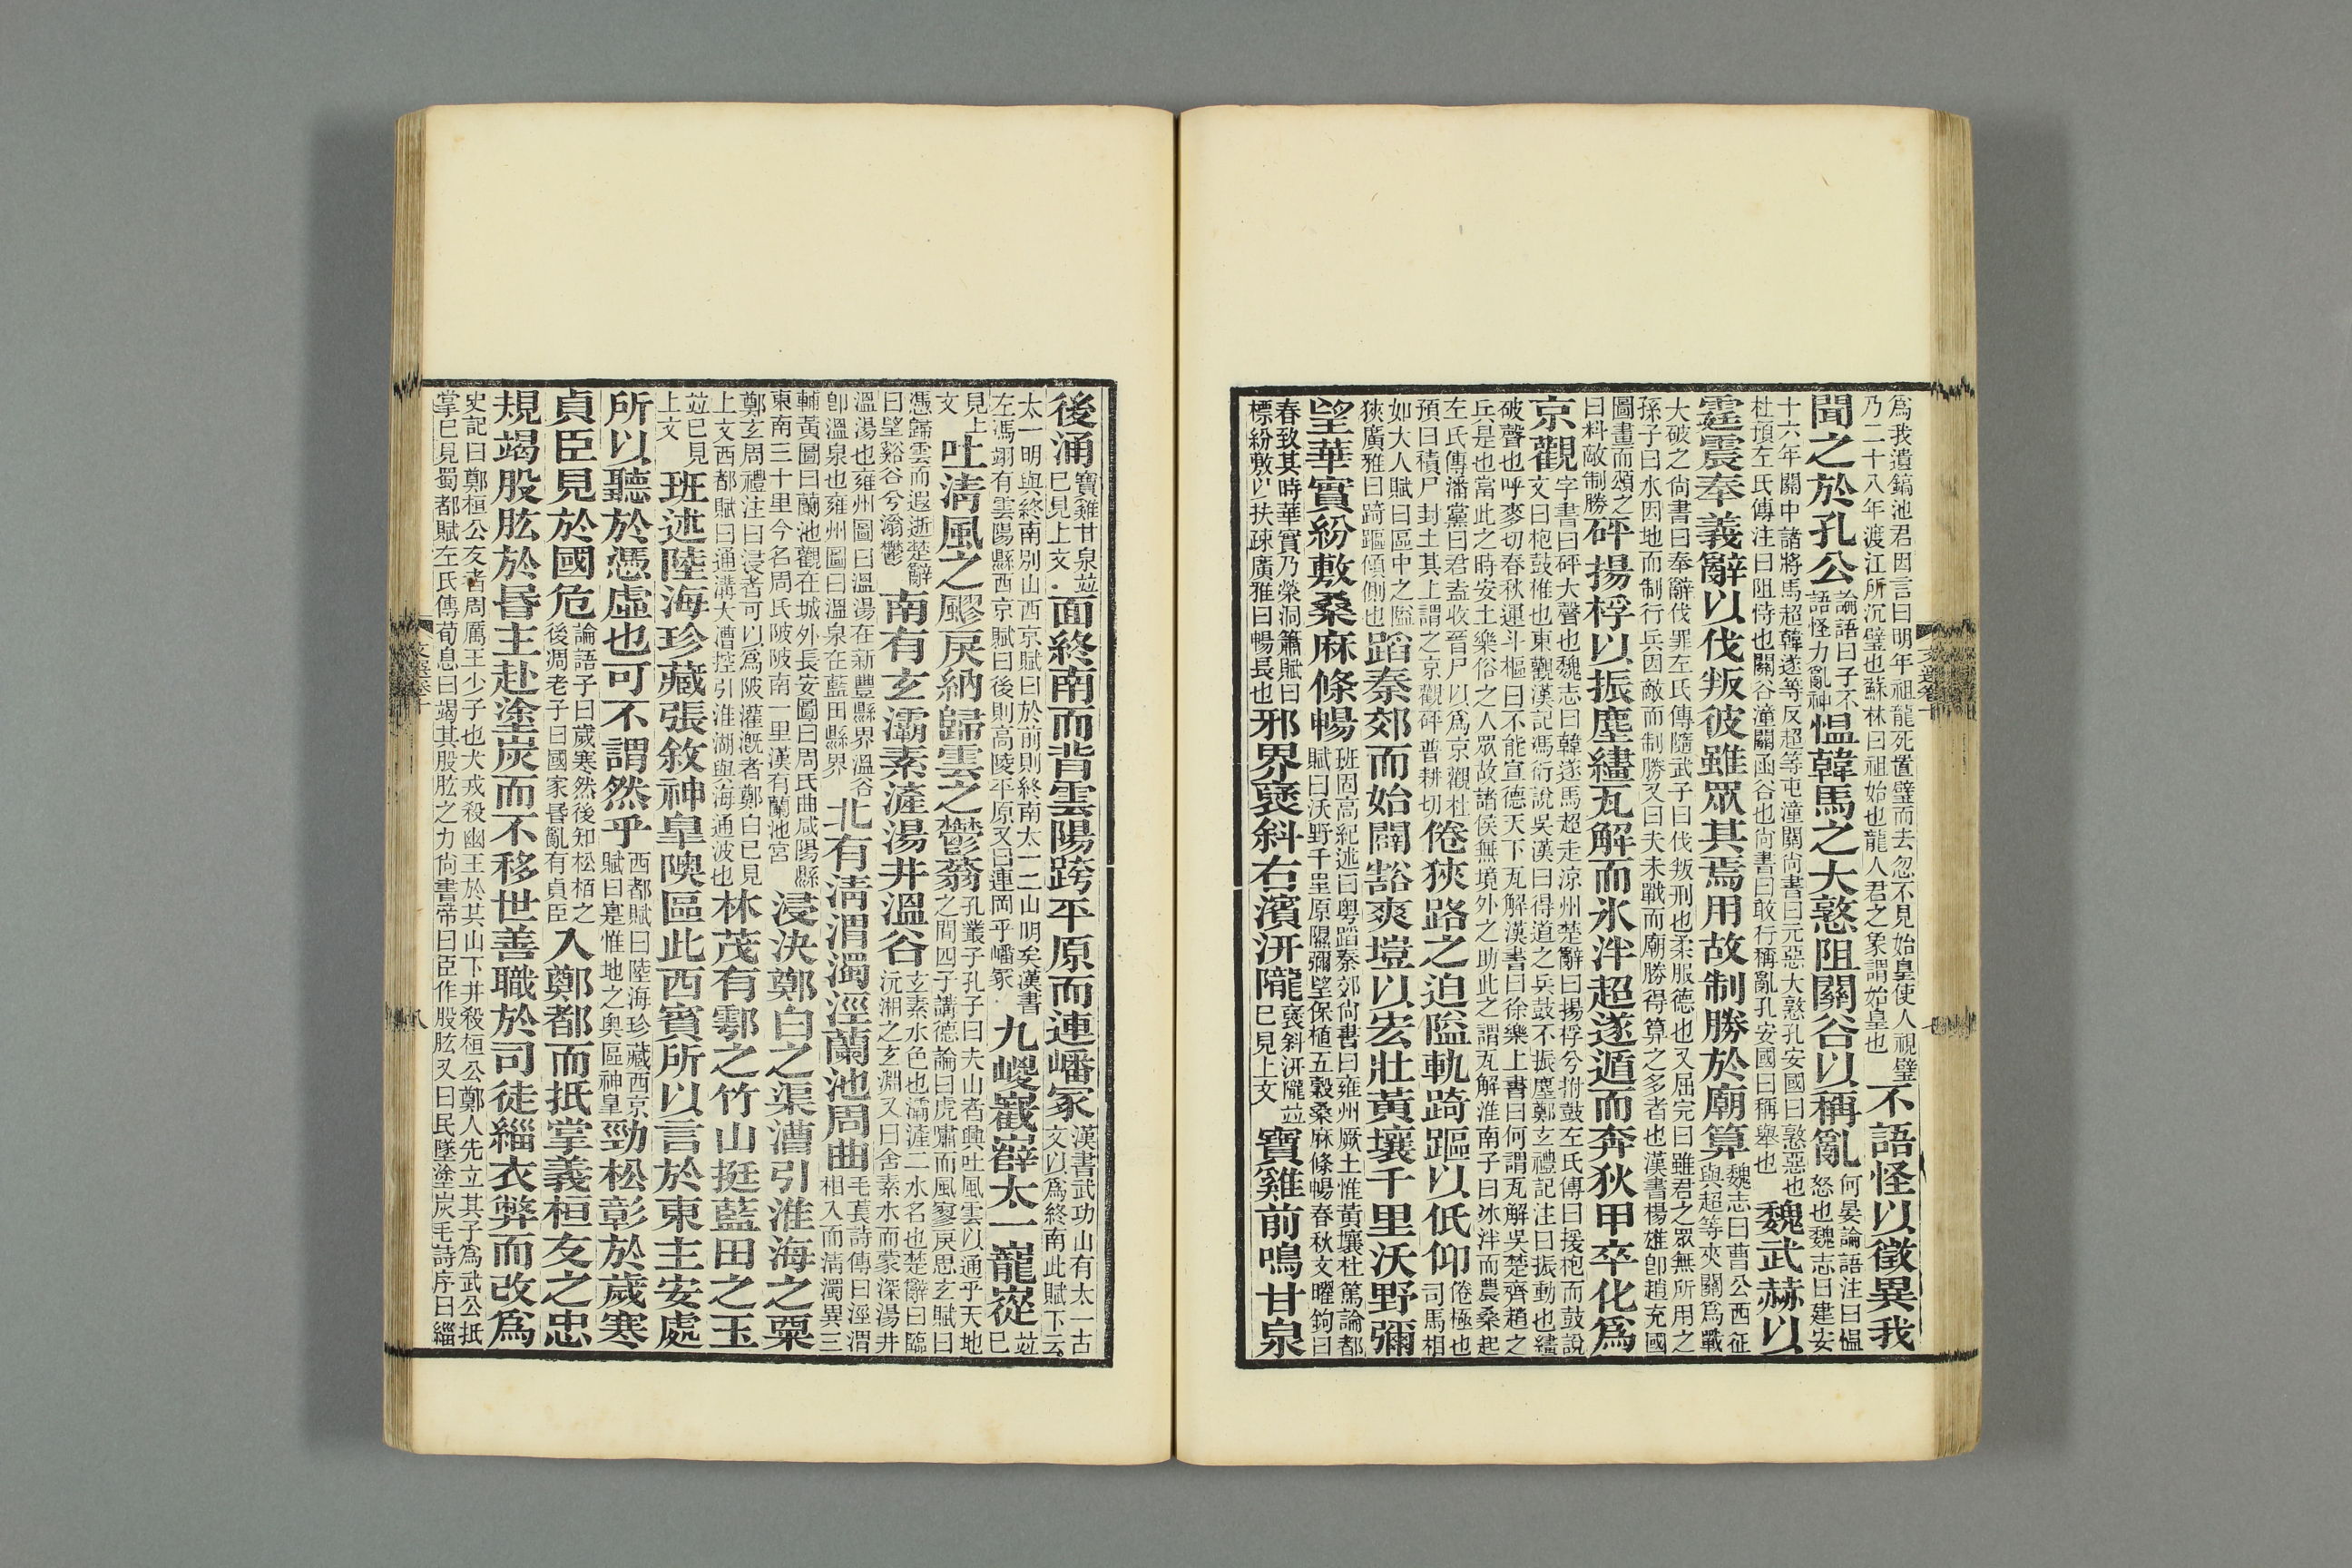 為我遺鎬池君因言曰明年祖龍死置璧而去忽不見始皇使人視璧乃二十八年渡江所沉璧也蘇林曰祖始也龍人君之象謂始皇也不語怪以徵異我
聞之於孔公論語曰子不語怪力亂神愠韓馬之大憝阻關谷以稱亂何晏論語注曰愠怒也魏志曰建安
十六年關中諸將馬超韓遂等反超等屯潼關尚書曰元惡大憝孔安國曰憝惡也杜預左氏傳注曰阻恃也關谷潼關函谷也尚書曰敢行稱亂孔安國曰稱舉也魏武赫以
霆震奉義辭以伐叛彼雖眾其焉用故制勝於廟算魏志曰曹公西征與超等夾關為戰
大破之尚書曰奉辭伐罪左氏傳隨武子曰伐叛刑也柔服德也又屈完曰雖君之眾無所用之孫子曰水因地而制行兵因敵而制勝又曰夫未戰而廟勝得算之多者也漢書楊雄卽趙充國
圖畫而頌之曰料敵制勝砰揚桴以振塵繣瓦解而冰泮超遂遁而奔狄甲卒化為
京觀字書曰砰大聲也魏志曰韓遂馬超走涼州楚辭曰揚桴兮拊鼓左氏傳曰援枹而鼓說文曰枹鼓椎也東觀漢記馮衍說吳漢曰得道之兵鼓不振塵鄭玄禮記注曰振動也繣
破聲也呼麥切春秋運斗樞曰不能宣德天下瓦解漢書曰徐樂上書曰何謂瓦解吳楚齊趙之兵是也當此之時安土樂俗之人眾故諸侯無境外之助此之謂瓦解淮南子曰冰泮而農桑起
左氏傳潘黨曰君盍收晉尸以為京觀杜預曰積尸封土其上謂之京觀砰普耕切倦狹路之迫隘軌踦䧢以低仰倦極也司馬相
如大人賦曰區中之隘狹廣雅曰踦䧢傾側也蹈秦郊而始闢豁爽塏以宏壯黃壤千里沃野彌
望華實紛敷桑麻條暢班固高紀述曰粵蹈秦郊尚書曰雍州厥土惟黃壤杜篤論都賦曰沃野千里原隰彌望保植五穀桑麻條暢春秋文曜鉤曰
春致其時華實乃榮洞簫賦曰標紛敷以扶疎廣雅曰暢長也邪界褒斜右濱汧隴褒斜汧隴並已見上文寶雞前鳴甘泉
後涌寶雞甘泉並已見上文面終南而背雲陽跨平原而連嶓冢漢書武功山有太一古文以為終南此賦下云
太一明與終南別山西京賦曰於前則終南太一二山明矣漢書左馮翊有雲陽縣西京賦曰後則高陵平原又曰連岡乎嶓冢九嵕嶻嶭太一巃嵸並已
見上文吐清風之飂戾納歸雲之鬱蓊孔叢子孔子曰夫山者興吐風雲以通乎天地之間四子講德論曰虎嘯而風寥戾思玄賦曰
憑歸雲而遐逝楚辭曰望谿谷兮滃鬱南有玄灞素滻湯井溫谷玄素水色也灞滻二水名也楚辭曰臨沅湘之玄淵又曰含素水而蒙深湯井
溫湯也雍州圖曰溫湯在新豐縣界溫谷卽溫泉也雍州圖曰溫泉在藍田縣界北有清渭濁涇蘭池周曲毛萇詩傳曰涇渭相入而清濁異三
輔黃圖曰蘭池觀在城外長安圖曰周氏曲咸陽縣東南三十里今名周氏陂陂南一里漢有蘭池宮浸決鄭白之渠漕引淮海之粟
鄭玄周禮注曰浸者可以為陂灌溉者鄭白已見上文西都賦曰通溝大漕控引淮湖與海通波也林茂有鄠之竹山挺藍田之玉
並已見上文班述陸海珍藏張敘神皐隩區此西賓所以言於東主安處
所以聽於憑虛也可不謂然乎西都賦曰陸海珍藏西京賦曰寔惟地之奧區神皐勁松彰於歲寒
貞臣見於國危論語子曰歲寒然後知松栢之後凋老子曰國家昬亂有貞臣入鄭都而抵掌義桓友之忠
規竭股肱於昬主赴塗炭而不移世善職於司徒緇衣弊而改為
史記曰鄭桓公友者周厲王少子也犬戎殺幽王於其山下并殺桓公鄭人先立其子為武公抵掌已見蜀都賦左氏傳荀息曰竭其股肱之力尚書帝曰臣作股肱又曰民墜塗炭毛詩序曰緇